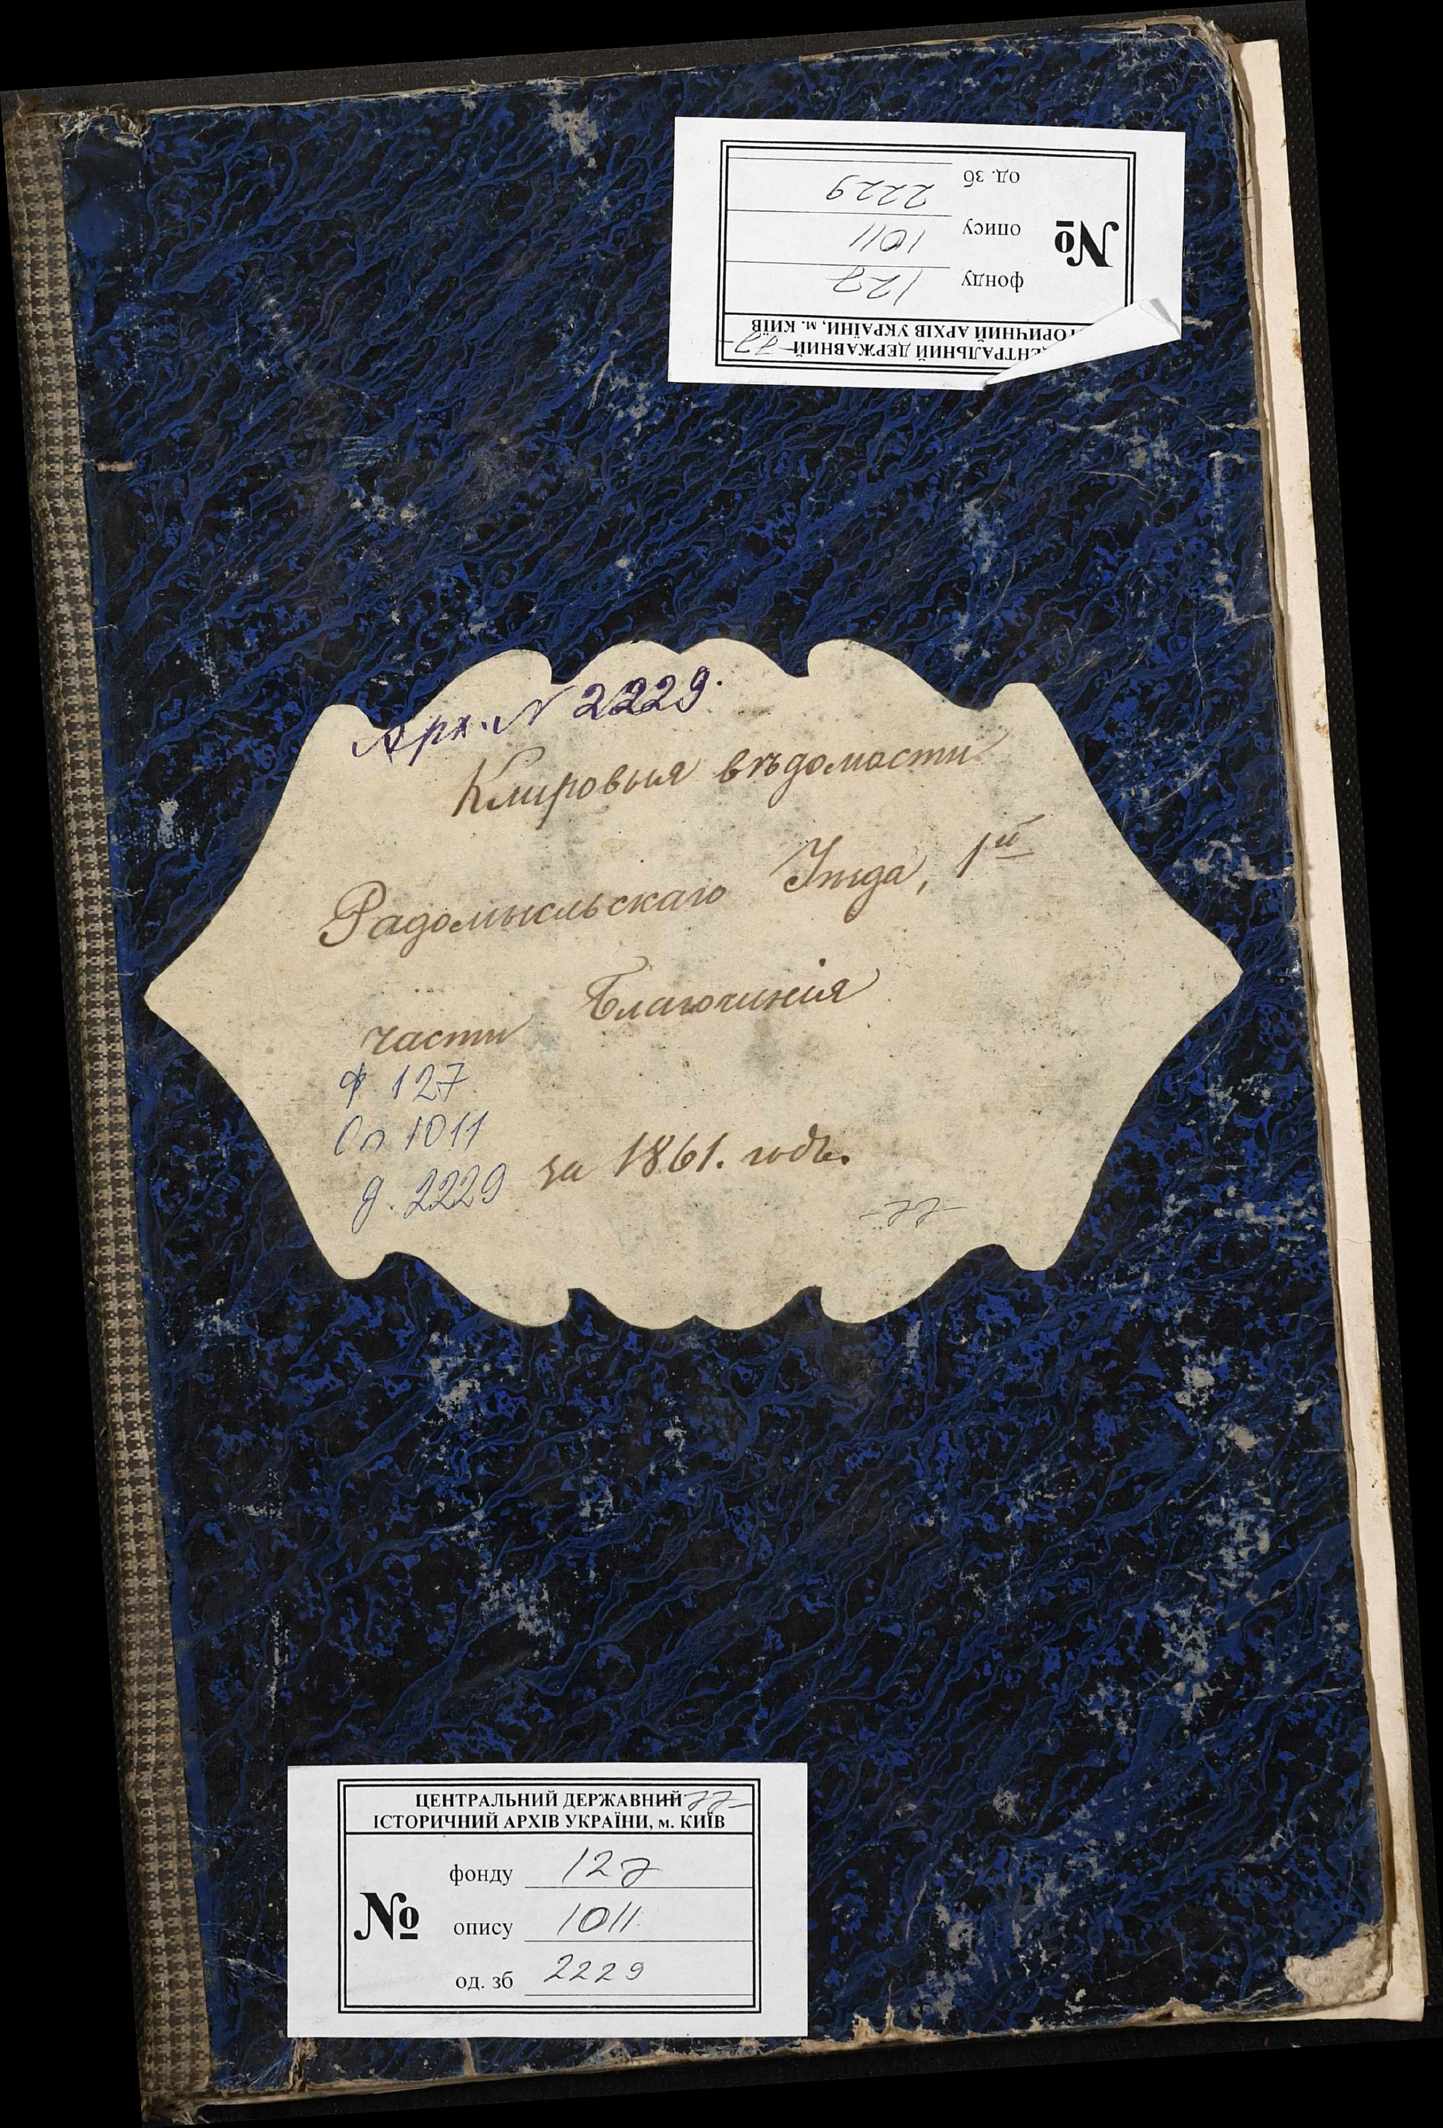 ЦЕНТРАЛЬНИЙ ДЕРЖАВНИЙ -77-
ІСТОРИЧНИЙ АРХІВ УКРАЇНИ, м. КИЇВ
№
фонду 127
опису 1011
од. зб 2229
Арх. N 2229.
Клировыя вѣдомости
Радомысльскаго Уѣзда, 1й
части Благочинія
ф. 127
Оп 1011
д. 2229
за 1861. годъ.
-77-
ЦЕНТРАЛЬНИЙ ДЕРЖАВНИЙ -77-
ІСТОРИЧНИЙ АРХІВ УКРАЇНИ, м. КИЇВ
№
фонду 127
опису 1011
од. зб 2229